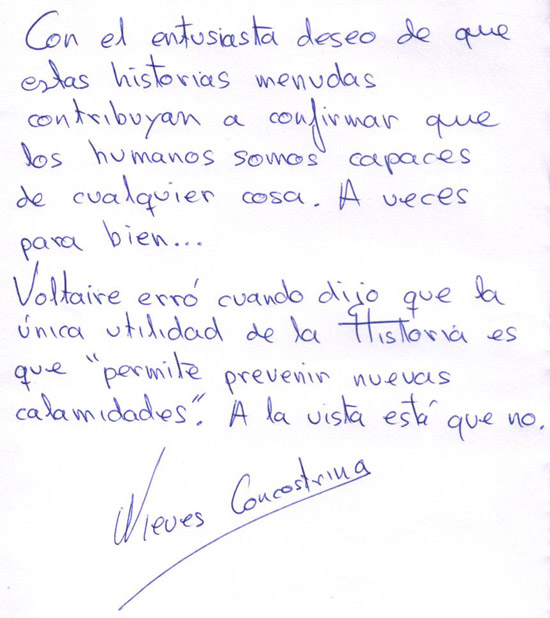 Con el entusiasta deseo de que
estas historias menudas
contribuyan a confirmar que
los humanos somos capaces
de cualquier cosa. A veces
para bien...
Voltaire erró cuando dijo que la
única utilidad de la Historia es
que "permite prevenir nuevas
calamidades". A la vista está que no.
Nieves Concostrina